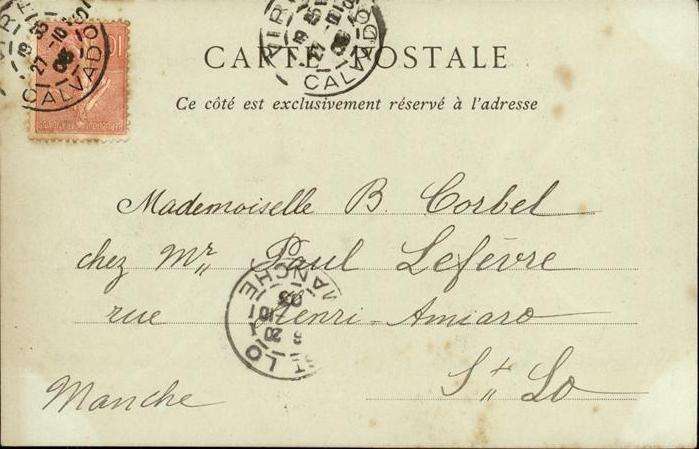 CARTE POSTALE
Ce côté est exclusivement réservé à l'adresse
Mademoiselle B. Corbel
chez Mr. Paul Lefèvre
rue Henri-Amiard
St. Lo
Manche
CALVADOS
CALVADOS
MANCHE
ST LO